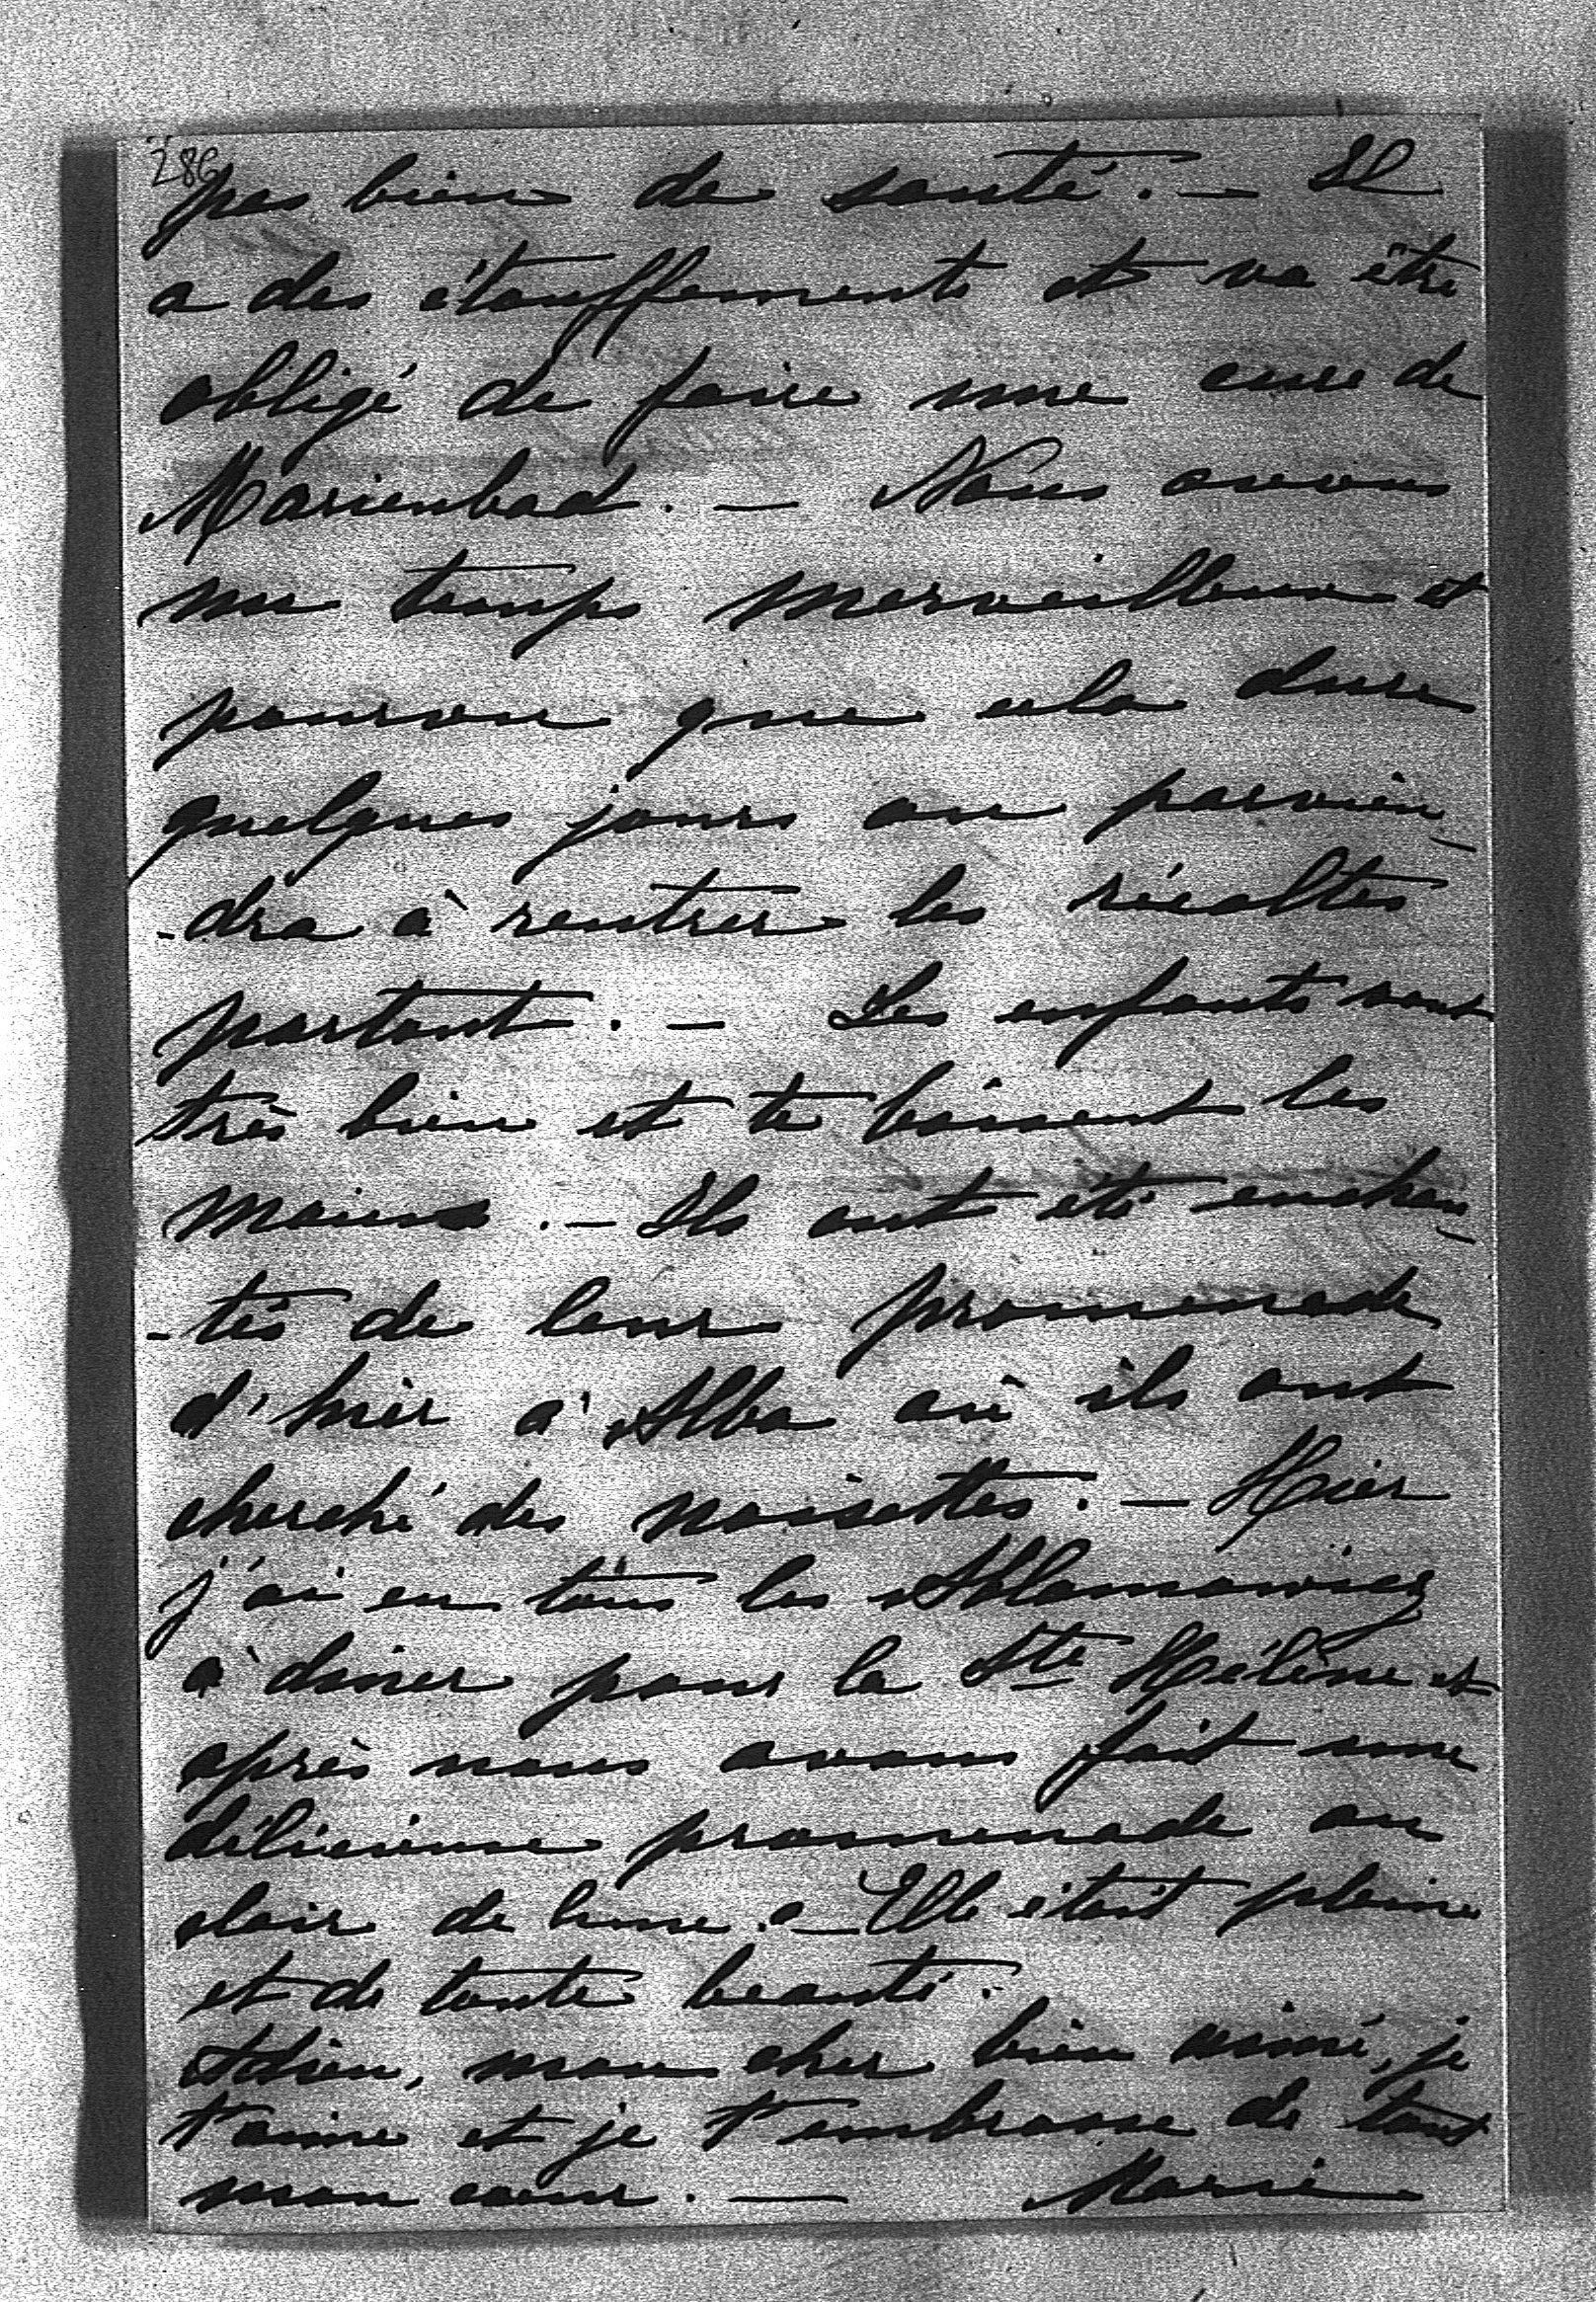 286
pas bien de santé. — Il
a des étouffements et va être
obligé de faire une cure de
Marienbad. — Nous avons
un temps merveilleux et
pourvu que cela dure
quelques jours on parvien-
-dra à rentrer les récoltes
partout. — Les enfants vont
très bien et te baisent les
mains. — Ils ont été enchan-
-tés de leur promenade
d'hier à Alba où ils ont
cherché des noisettes. — Hier
j'ai eu tous les
à diner pour la Ste Hélène et
après nous avons fait une
délicieuse promenade au
clair de lune. — Elle était pleine
et de toute beauté.
Adieu, mon cher bien aimé, je
t'aime et je t'embrasse de tout
mon cœur. — Marie